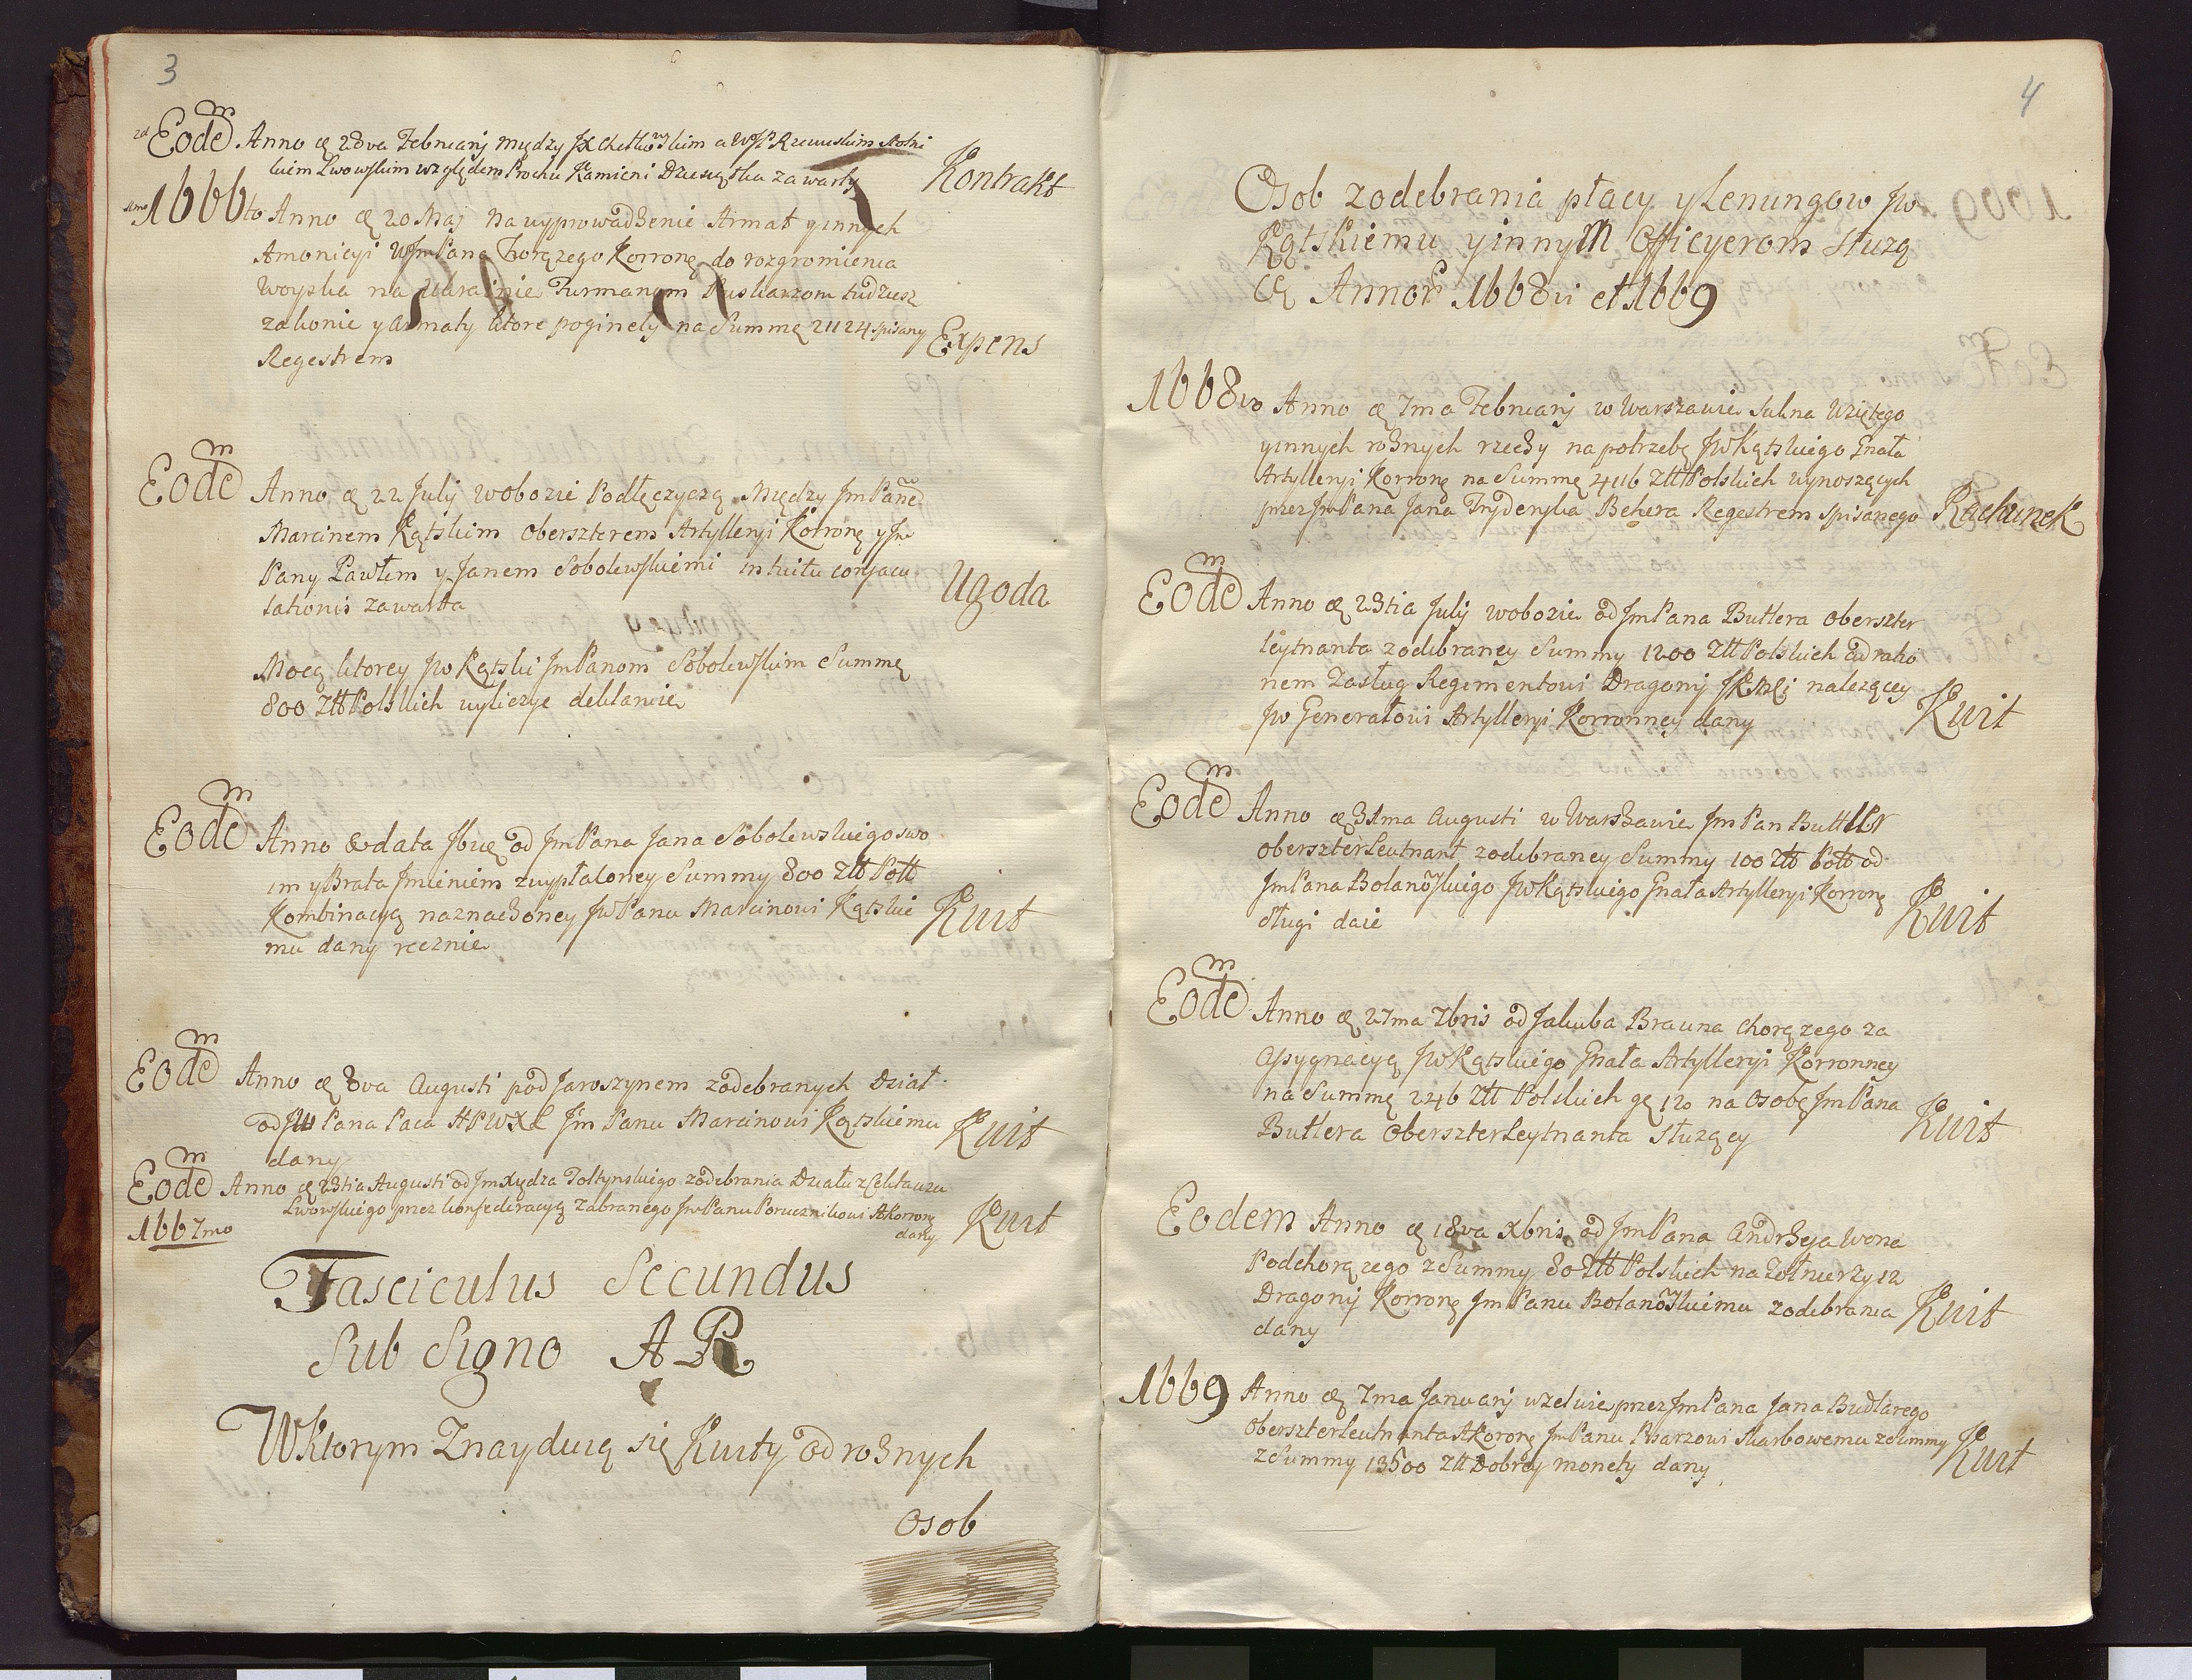 3
Eodem Anno et 28va Februarij między JX Chełkowskim a WJP Rzewuskim Stolni
kiem Lwowskim względem Prochu Kamieni Dziesiątka zawarty Kontrakt
1666to Anno et 20 Maj Na wyprowadzenie Armat yinnych
Amonicyi WJmPana Chorązego Korronę do rozgromienia
Woyska na Ukrainie Furmanom Puskarzom tudziesz
zakonie y Armaty ktore poginely na Summę 21124 spisany Expens
Regestrem
Eodem Anno et 22 July wobozie Podłęczyczą Między JmPanem
Marcinem Kątskim Oberszterem Artylleryi Korronę y Jm
Pany Pawłem y Janem Sobolewskiemi intuitu conjacu
lationis zawarta Ugoda
Mocą ktorey Jw Kątski JmPanom Sobolewskim Summę
800 Złł Polskich wyliczye deklaruie
Eodem Anno & data Ibuę od JmPana Jana Sobolewskiego swo
im y Brata Jmieniem zwypłaloney Summy 800 Złł Poll
Kombinacyą naznaczoney JwPanu Marcinowi Kątskie Kwit
mu dany ręcznie
Eodem Anno et 8va Augusti pod Jaroszynem zodebranych Dział
od JW Pana Paca HPWXL Jm Panu Marcinowi Kątskiemu Kwit
dany
Eodem Anno et 23tia Augusti od Jmxiędza Foltynskiego zodebrania Działu z Cekhauzu
Lwowskiego przez konfederacyą Zabranego JmPanu Porucznikowi AKorronę Kwit
dany
1667mo
Fasciculus Secundus
Sub Signo A R
Wktorym Znayduią się Kwity od roznych
Osob
4
Osob zodebrania płacy y Lenungow Jw
Kątskiemu yinnym Officyerom służą
ce Annor 1668vi et 1669
1668vo Anno et 7ma Februarij w Warszawie Sukna Wziętego
yinnych roznych rzeczy na potrzebę JwKątskiego Gnała
Artylleryi Korronę na Summę 4116 Złł Polskich wynoszących
przez JmPana Jana Fryderyka Bekera Regestrem spisanego Rachunek
Eodem Anno et 23tia July wobozie od JmPana Butlera Oberszter
leytnanta zodebraney Summy 1200 Złł Polskich adratio
nem Zasług Regimentowi Dragonij JKMci nalezącey
Jw Generałowi Artylleryi Korronney dany Kwit
Eodem Anno et 31ma Augusti w Warszawie Jm Pan Buttler
oberszterleutnant zodebraney Summy 100 Złł Poll od
JmPana Bolanowskiego JwKątskiego Gnała Artylleryi Korronę
sługi daie Kwit
Eodem Anno et 27ma 7bris od Jakuba Brauna Chorązego za
Assygnacyą JwKątskiego Gnała Artylleryi Korronney
na Summę 246 Złł Polskich gę 120 na Osobę JmPana
Butlera Oberszterleytnanta służący Kwit
Eodem Anno et 18va Xbris od JmPana Andrzeja Wona
Podchorązego z Summy 80 Złł Polskich na Zołnierzy 12
Dragonij Korronę Jm Panu Bolanowskiemu zodebrania Kwit
dany
1669 Anno et 7ma Januarij wzelwie przez JmPana Jana Budlarego
Oberszterleutnanta AKoronę JmPanu Pisarzowi Skarbowemu zsummy
zSummy 13500 Złł Dobrey monety dany Kwit